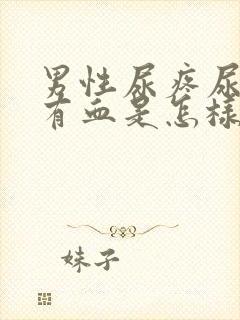 男性尿疼尿
有血是怎样
妹子